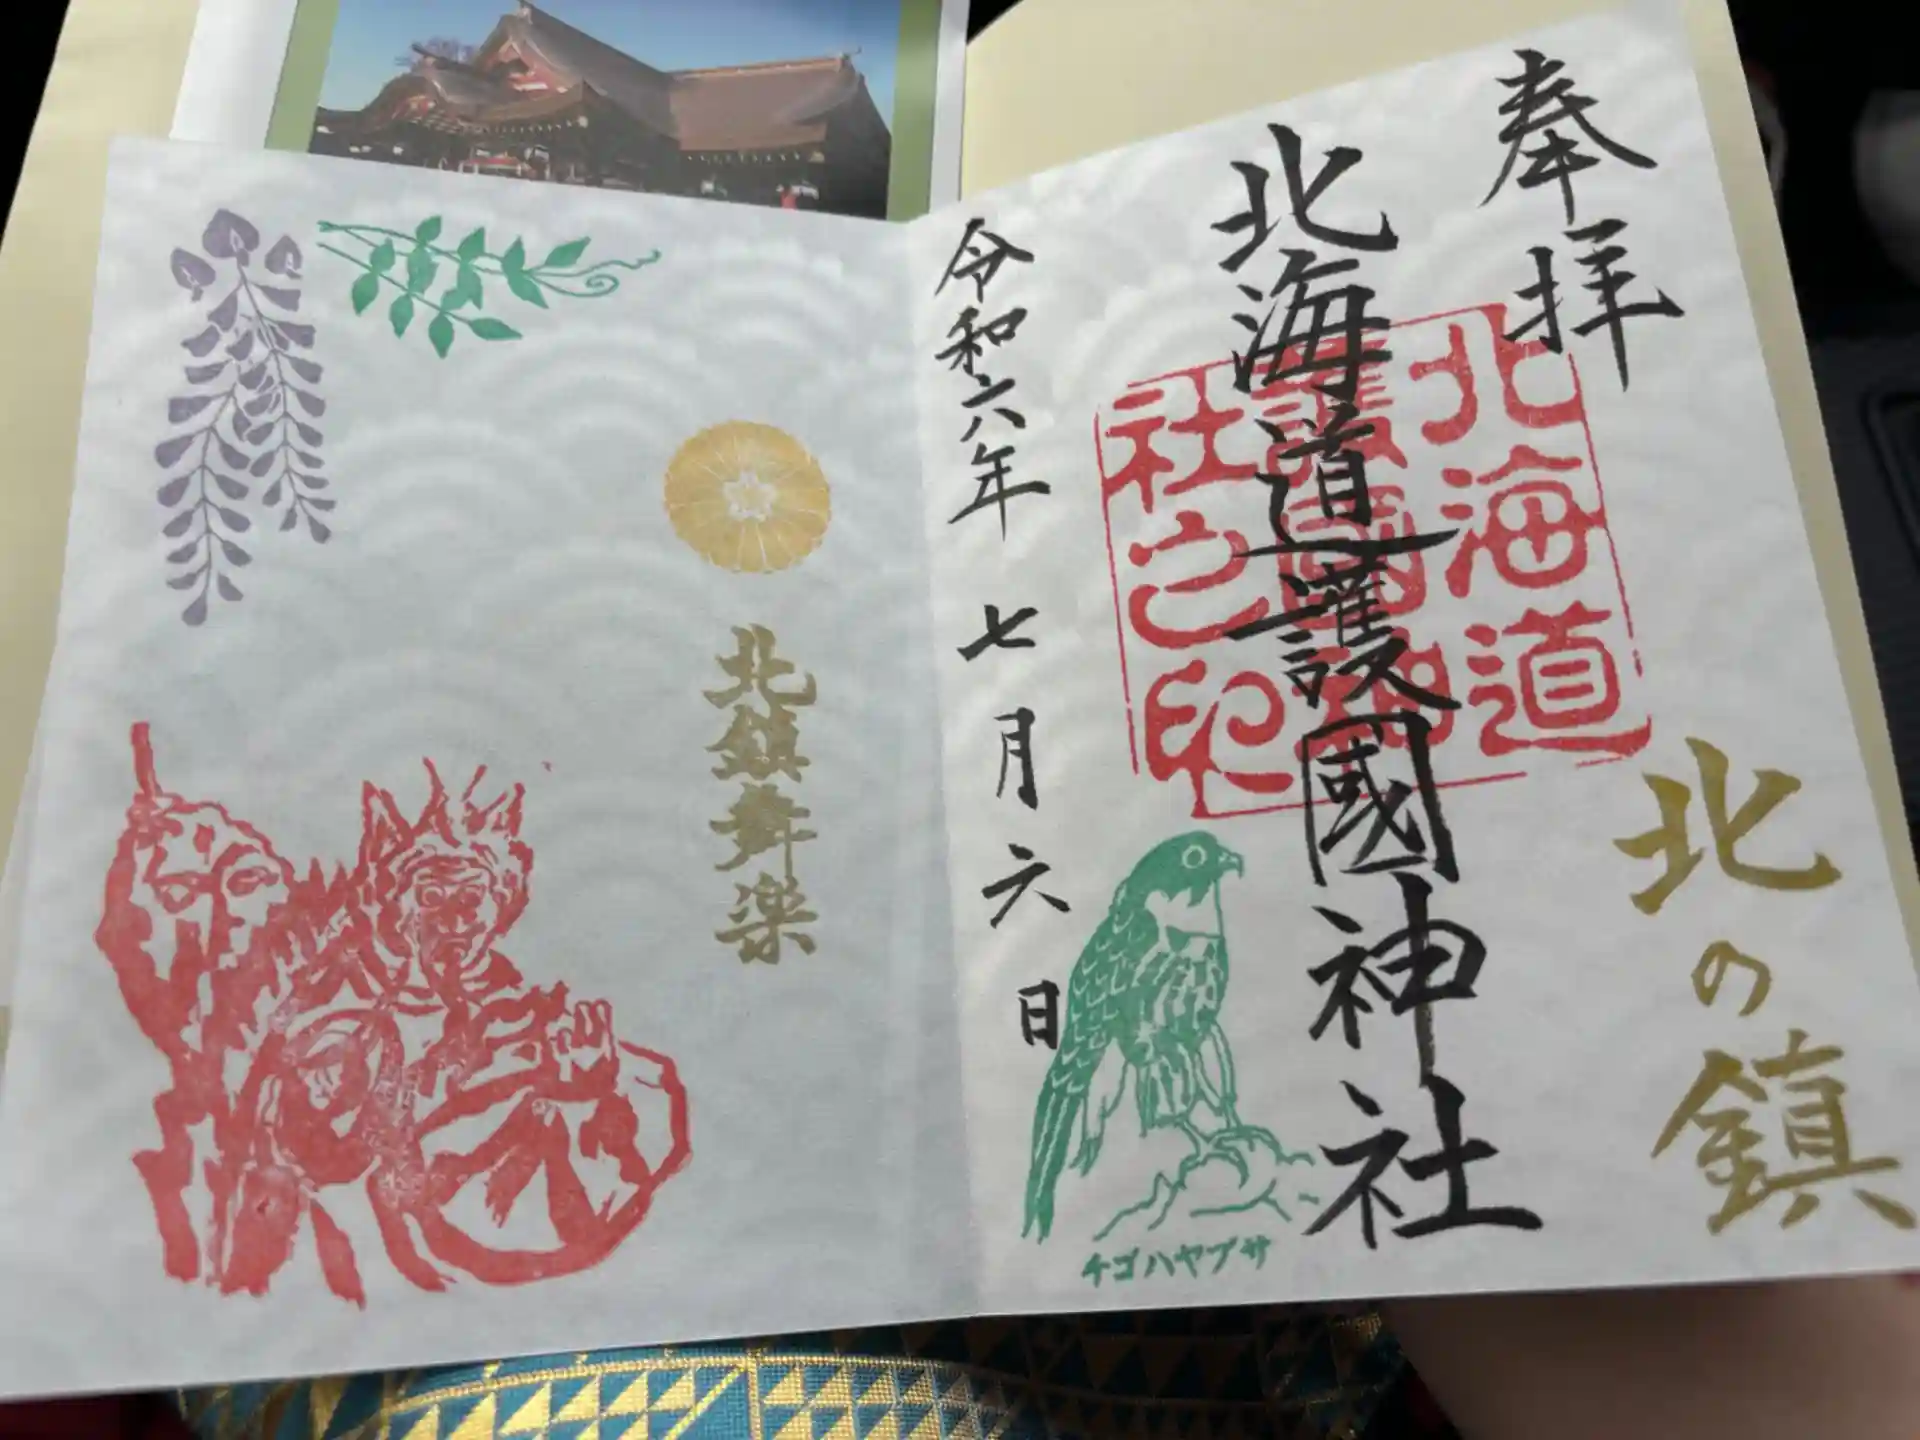 奉拝
北海道護國神社
北海道
護國神
社之印
北の鎮
令和六年 七月六日
チゴハヤブサ
北鎮舞楽